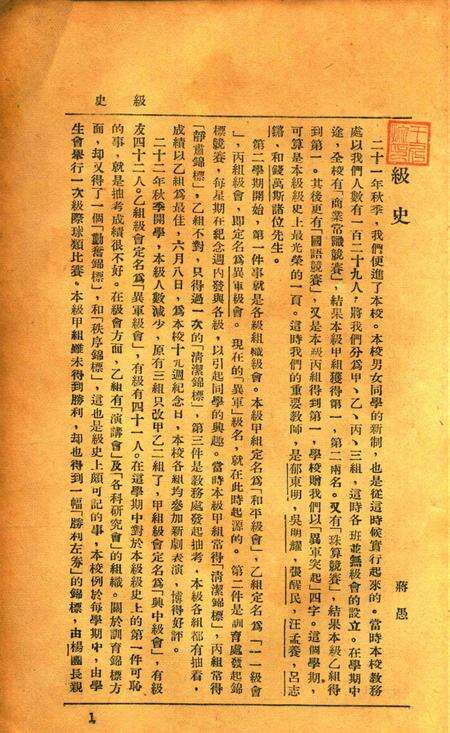 級史
級史
蔣愚
二十一年秋季，我們便進了本校。本校男女同學的新制，也是從這時候實行起來的。當時本校教務
處以我們人數有一百二十九人，將我們分爲甲、乙、丙、三組，這時各班並無級會的設立。在學期中
途，全校有「商業常識競賽」，結果本級甲組獲得第一，第二兩名。又有「珠算競賽」，結果本級乙組得
到第一。其後更有「國語競賽」，又是本級丙組得到第一，學校贈我們以「異軍突起」四字。這個學期，
可算是本級級史上最光榮的一頁。這時我們的重要教師，是郁東明，吳明耀，張醒民，汪孟養，呂志
鏘，和錢萬斯諸位先生。
第二學期開始，第一件事就是各級組織級會。本級甲組定名爲「和平級會」，乙組定名爲「一一級會
」，丙組級會，即定名爲異軍級會。現在的「異軍」級名，就在此時起源的。第二件是訓育處發起錦
標競賽，每星期在紀念週內發與各級，以引起同學的興趣。當時本級甲組常得「清潔錦標」，丙組常得
「靜肅錦標」，乙組不對，只得過一次的「清潔錦標」，第三件是教務處發起抽考，本級各組都有抽着，
成績以乙組爲最佳。六月八日，爲本校十九週紀念日，本校各組均參加新劇表演，博得好評。
二十二年秋季開學，本級人數減少，原有三組只改甲乙二組了，甲組級會定名爲「興中級會」，有級
友四十二八。乙組級會定名爲「異軍級會」，有級友四十一八。在這學期中對於本級級史上的第一件可恥
的事，就是抽考成績很不好。在級會方面，乙組有「演講會」及「各科研究會」的組織。關於訓育錦標方
面，却又得了一個「勤奮錦標」，和「秩序錦標」，這也是級史上頗可記的事，本校例於每學期中，由學
生會舉行一次級際球類比賽。本級甲組雖未得到勝利，却也得到一幅「勝利左券」的錦標，由楊國長親
1